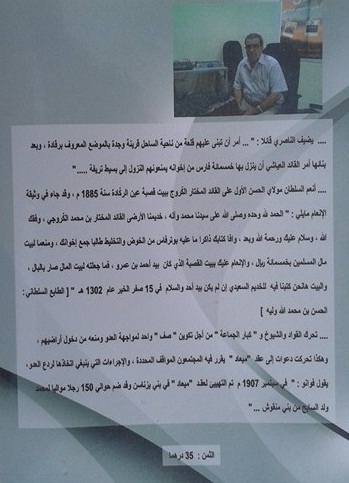 .... يضيف الناصري قائلا : " ... أمر أن تبنى عليهم قلعة من ناحية الساحل قريبة وجدة بالموضع المعروف برقادة ، وبعد
بنائها أمر القائد العياشي أن ينزل بها خمسمائة فارس من إخوانه يمنعونهم النزول إلى بسيط تريفة ....."
.... أنعم السلطان مولاي الحسن الأول على القائد المختار الكروج ببيت قصبة عين الركادة سنة 1885 م ، وقد جاء في وثيقة
الإنعام مايلي : " الحمد لله وحده وصلى الله على سيدنا محمد وآله ، خديمنا الأرضى القائد المختار بن محمد الكروجي ، وفقك
الله ، وسلام عليك ورحمة الله وبعد ، وافا كتابك ذاكرا ما عليه بوثرفاس من الخوض والتخليط طالبا جمع إخوانك ، ومنعما لبيت
مال المسلمين بخمسمائة ريال ، والإنعام عليك ببيت القصبة الذي كان بيد أحمد بن عمرو ، فما جعلته لبيت المال صار بالبال ،
والبيت هانحن كتبنا فيه للخديم السعيدي إن لم يكن بيد أحد والسلام في 15 صفر الخير عام 1302 هـ " [ الطابع السلطاني :
الحسن بن محمد الله وليه ]
.... تحرك القواد والشيوخ و " كبار الجماعة " من أجل تكوين " صف " واحد لمواجهة العدو ومنعه من دخول أراضيهم ،
وهكذا تحركت دعوات إلى عقد "ميعاد " يقرر فيه المجتمعون المواقف المحددة ، والإجراءات التي ينبغي اتخاذها لردع العدو ،
يقول فوانو : " في سبتمبر 1907 م تم التهييئ لعقد "ميعاد " في بني يزناسن وقد ضم حوالي 150 رجلا مواليا لمحمد
ولد السايح من بني منقوش ..."
الثمن : 35 درهما